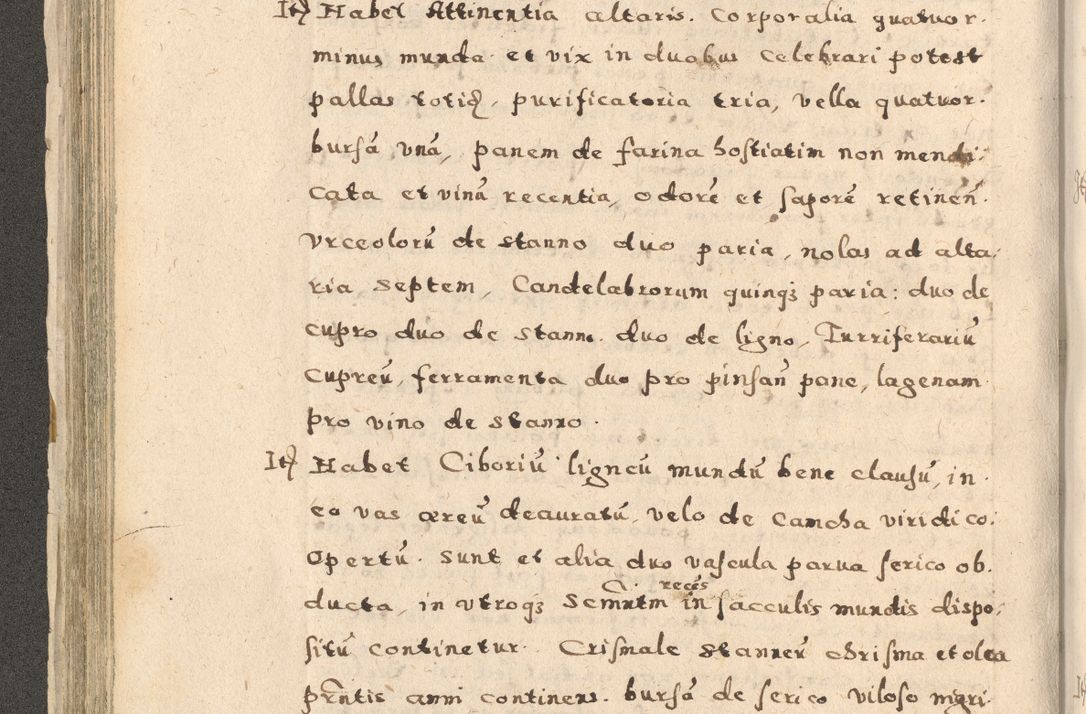 Itȩ Habet Attinentia altaris. Corporalia quatuor.
minus munda et vix in duobus celebrari potest
pallas totiȡ, purificatoria tria, vella quatuor.
bursā vnā, panem de farina hostiatim non mendi:
cata et vinū recentia, odorē et saporē retinen̄.
Vrceolorū de stanno duo paria, nolas ad alta:
ria septem, Candelabrorum quinqȝ paria: duo de
cupro duo de stanno. duo de ligno, Turriferariū
cupreū, ferramenta duo pro pinsan̄ pane, lagenam
pro vino de stanno.
Itȩ Habet Ciboriū ligneū mundū bene clausū, in
eo vas æreū deauratū, velo de Camcha viridi co:
opertū. sunt et alia duo vascula parua serico ob.
ducta, in vtroqȝ Scmntm reces in sacculis mundis dispo:
sitū continetur. Crismale stanneū chrisma et olea
prn̄tis anni continens. bursā de serico viloso